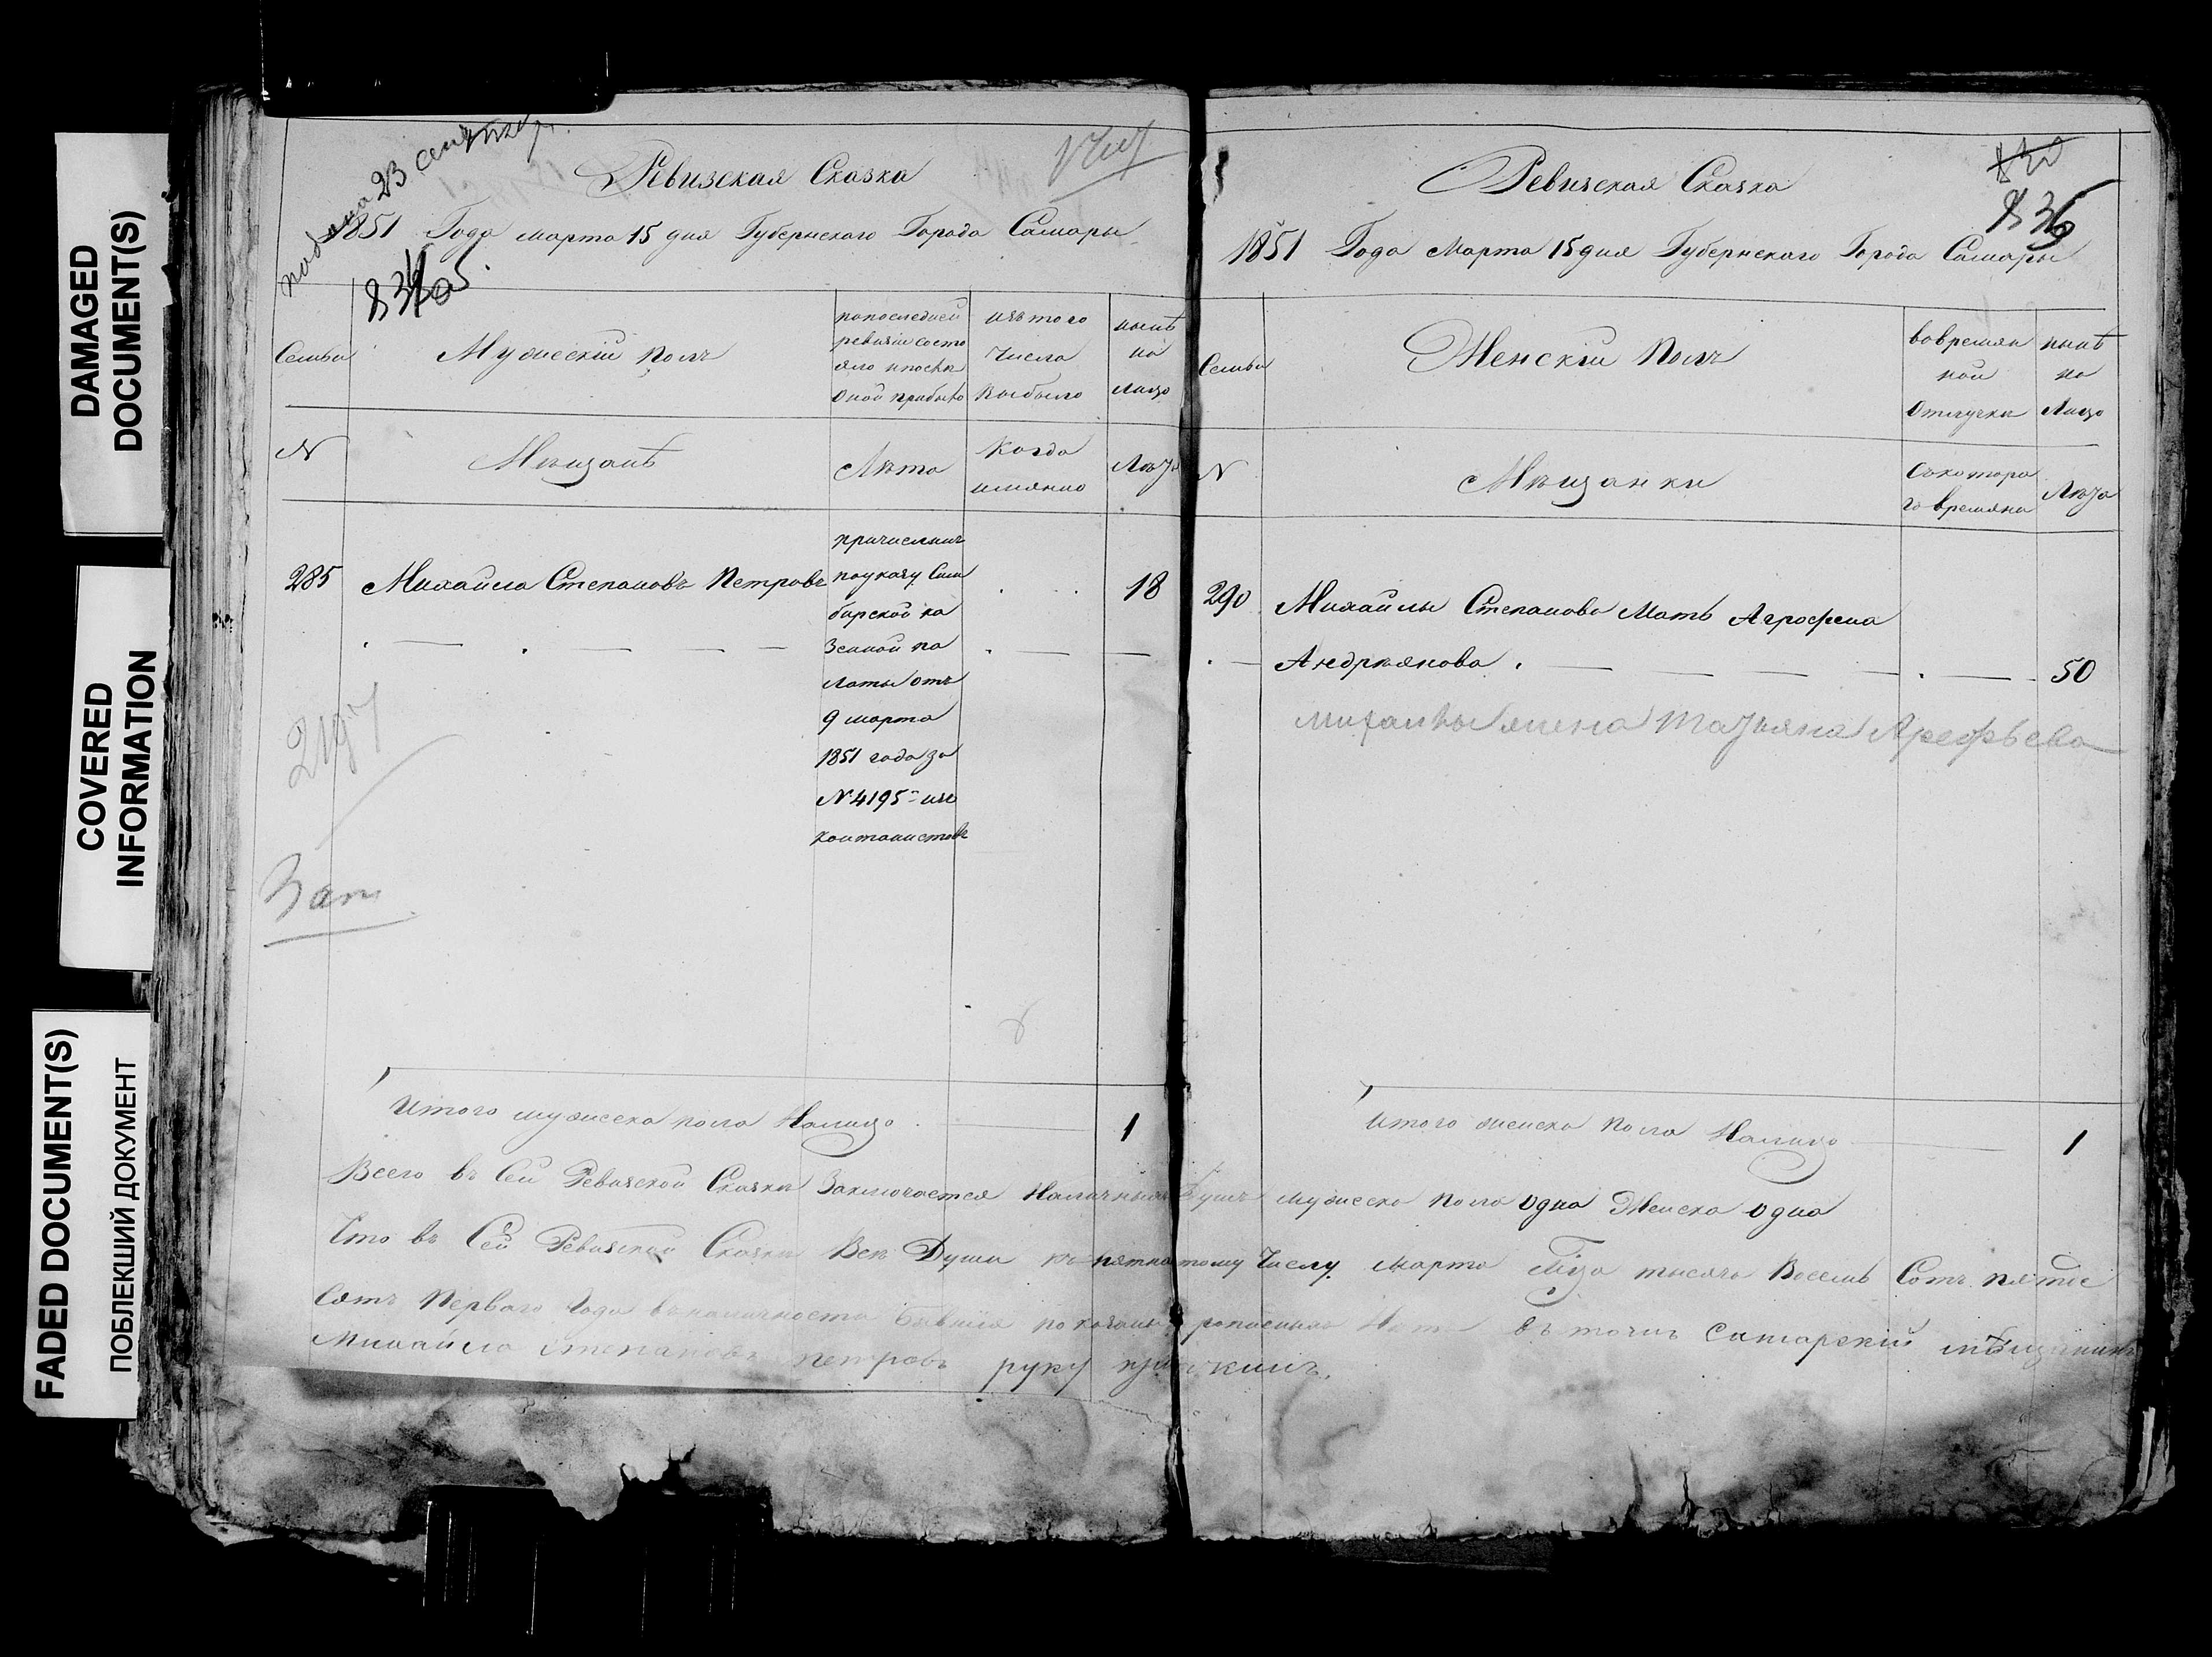 DAMAGED
DOCUMENT(S)
COVERED
INFORMATION
FADED DOCUMENT(S)
ПОБЛЕКШИЙ ДОКУМЕНТ
подана 23 сентябр.
Ревизская Сказка
1851 Года марта 15 дня Губернскаго Города Самары
Семьи
Мужескій полъ
попоследней
ревизіи состо
яло и после
оной прибыло
изътого
числа
выбыло
ныне
на
лицо
N
Мещане
Лета
Когда
имянно
Лета
285 Михайла Степановъ Петровъ
причисленъ
поуказу Сим
бирской ка
зенной па
латы отъ
9 марта
1851 года за
N 4195 изъ
кантонистовъ
18
Зап
Итого мужеска пола Налицо 1
Ревизская Сказка
836
1851 Года Марта 15 дня Губернскаго Города Самары
Семьи
Женскій Полъ
вовремян
ной
отлучки
ныне
на
лицо
N
Мещанки
съкотора
го времяни
Лета
290 Михайлы Степанова Мать Агрофена
Андреянова 50
михайлы жена Татьяна Арефьева
Итого женска пола Налицо 1
Всего въ Сей Ревизской Сказке Заключается Наличныхъ Душъ мужеска пола одна Женска одна
Что въ Сей Ревизской Сказке Все Души къ пятнатому Числу марта тысяча Восемь Сотъ пятде
сятъ Перваго Года въ наличности бывшія показаны въ томъ самарскій мѣщанинъ
Михайла Степановъ петровъ руку приложилъ.